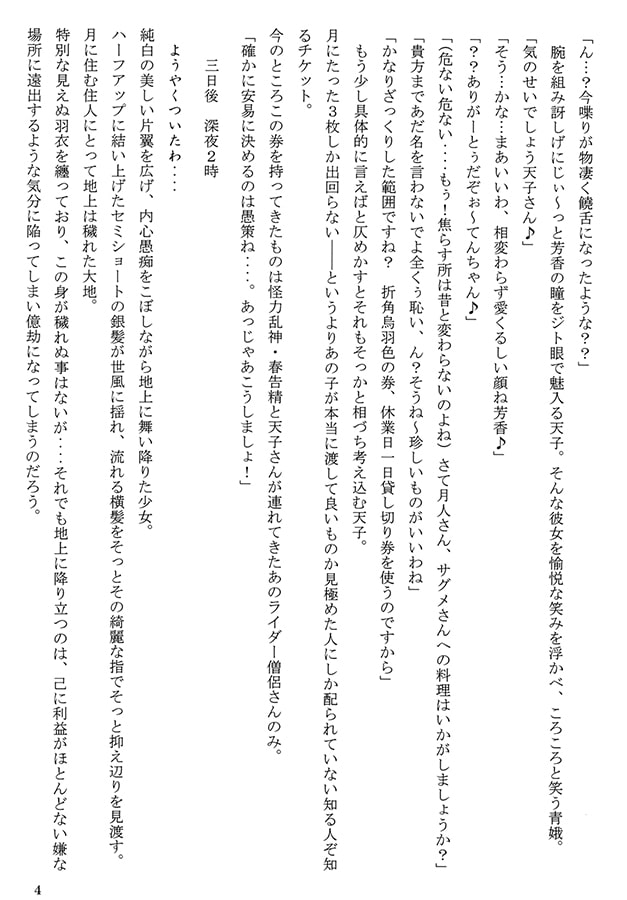 「ん…？今喋りが物凄く饒舌になったような？？」
　腕を組み訝しげにじぃ～っと芳香の瞳をジト眼で魅入る天子。そんな彼女を愉悦な笑みを浮かべ、ころころと笑う青娥。
「気のせいでしょう天子さん♪」
「そう…かな…まあいいわ、相変わらず愛くるしい顔ね芳香♪」
「？？ありがーとぅだぞぉ～てんちゃん♪」
「（危ない危ない...もぅ！焦らす所は昔と変わらないのよね）さて月人さん、サグメさんへの料理はいかがしましょうか？」
「貴方まであだ名を言わないでよ全くぅ恥い、ん？そうね～珍しいものがいいわね」
「かなりざっくりした範囲ですね？　折角烏羽色の券、休業日一日貸し切り券を使うのですから」
　もう少し具体的に言えばと仄めかすとそれもそっかと相づち考え込む天子。
月にたった３枚しか出回らない――というよりあの子が本当に渡して良いものか見極めた人にしか配られていない知る人ぞ知
るチケット。
今のところこの券を持ってきたものは怪力乱神・春告精と天子さんが連れてきたあのライダー僧侶さんのみ。
「確かに安易に決めるのは愚策ね...。あっじゃあこうしましょ！」
三日後　深夜２時
ようやくついたわ...
純白の美しい片翼を広げ、内心愚痴をこぼしながら地上に舞い降りた少女。
ハーフアップに結い上げたセミショートの銀髪が世風に揺れ、流れる横髪をそっとその綺麗な指でそっと抑え辺りを見渡す。
月に住む住人にとって地上は穢れた大地。
特別な見えぬ羽衣を纏っており、この身が穢れぬ事はないが...それでも地上に降り立つのは、己に利益がほとんどない嫌な
場所に遠出するような気分に陥ってしまい億劫になってしまうのだろう。
4